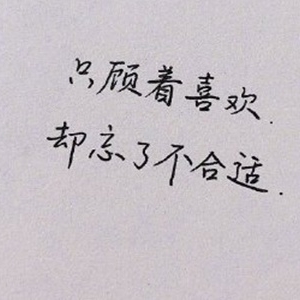 只顾着喜欢.
却忘了不合适.